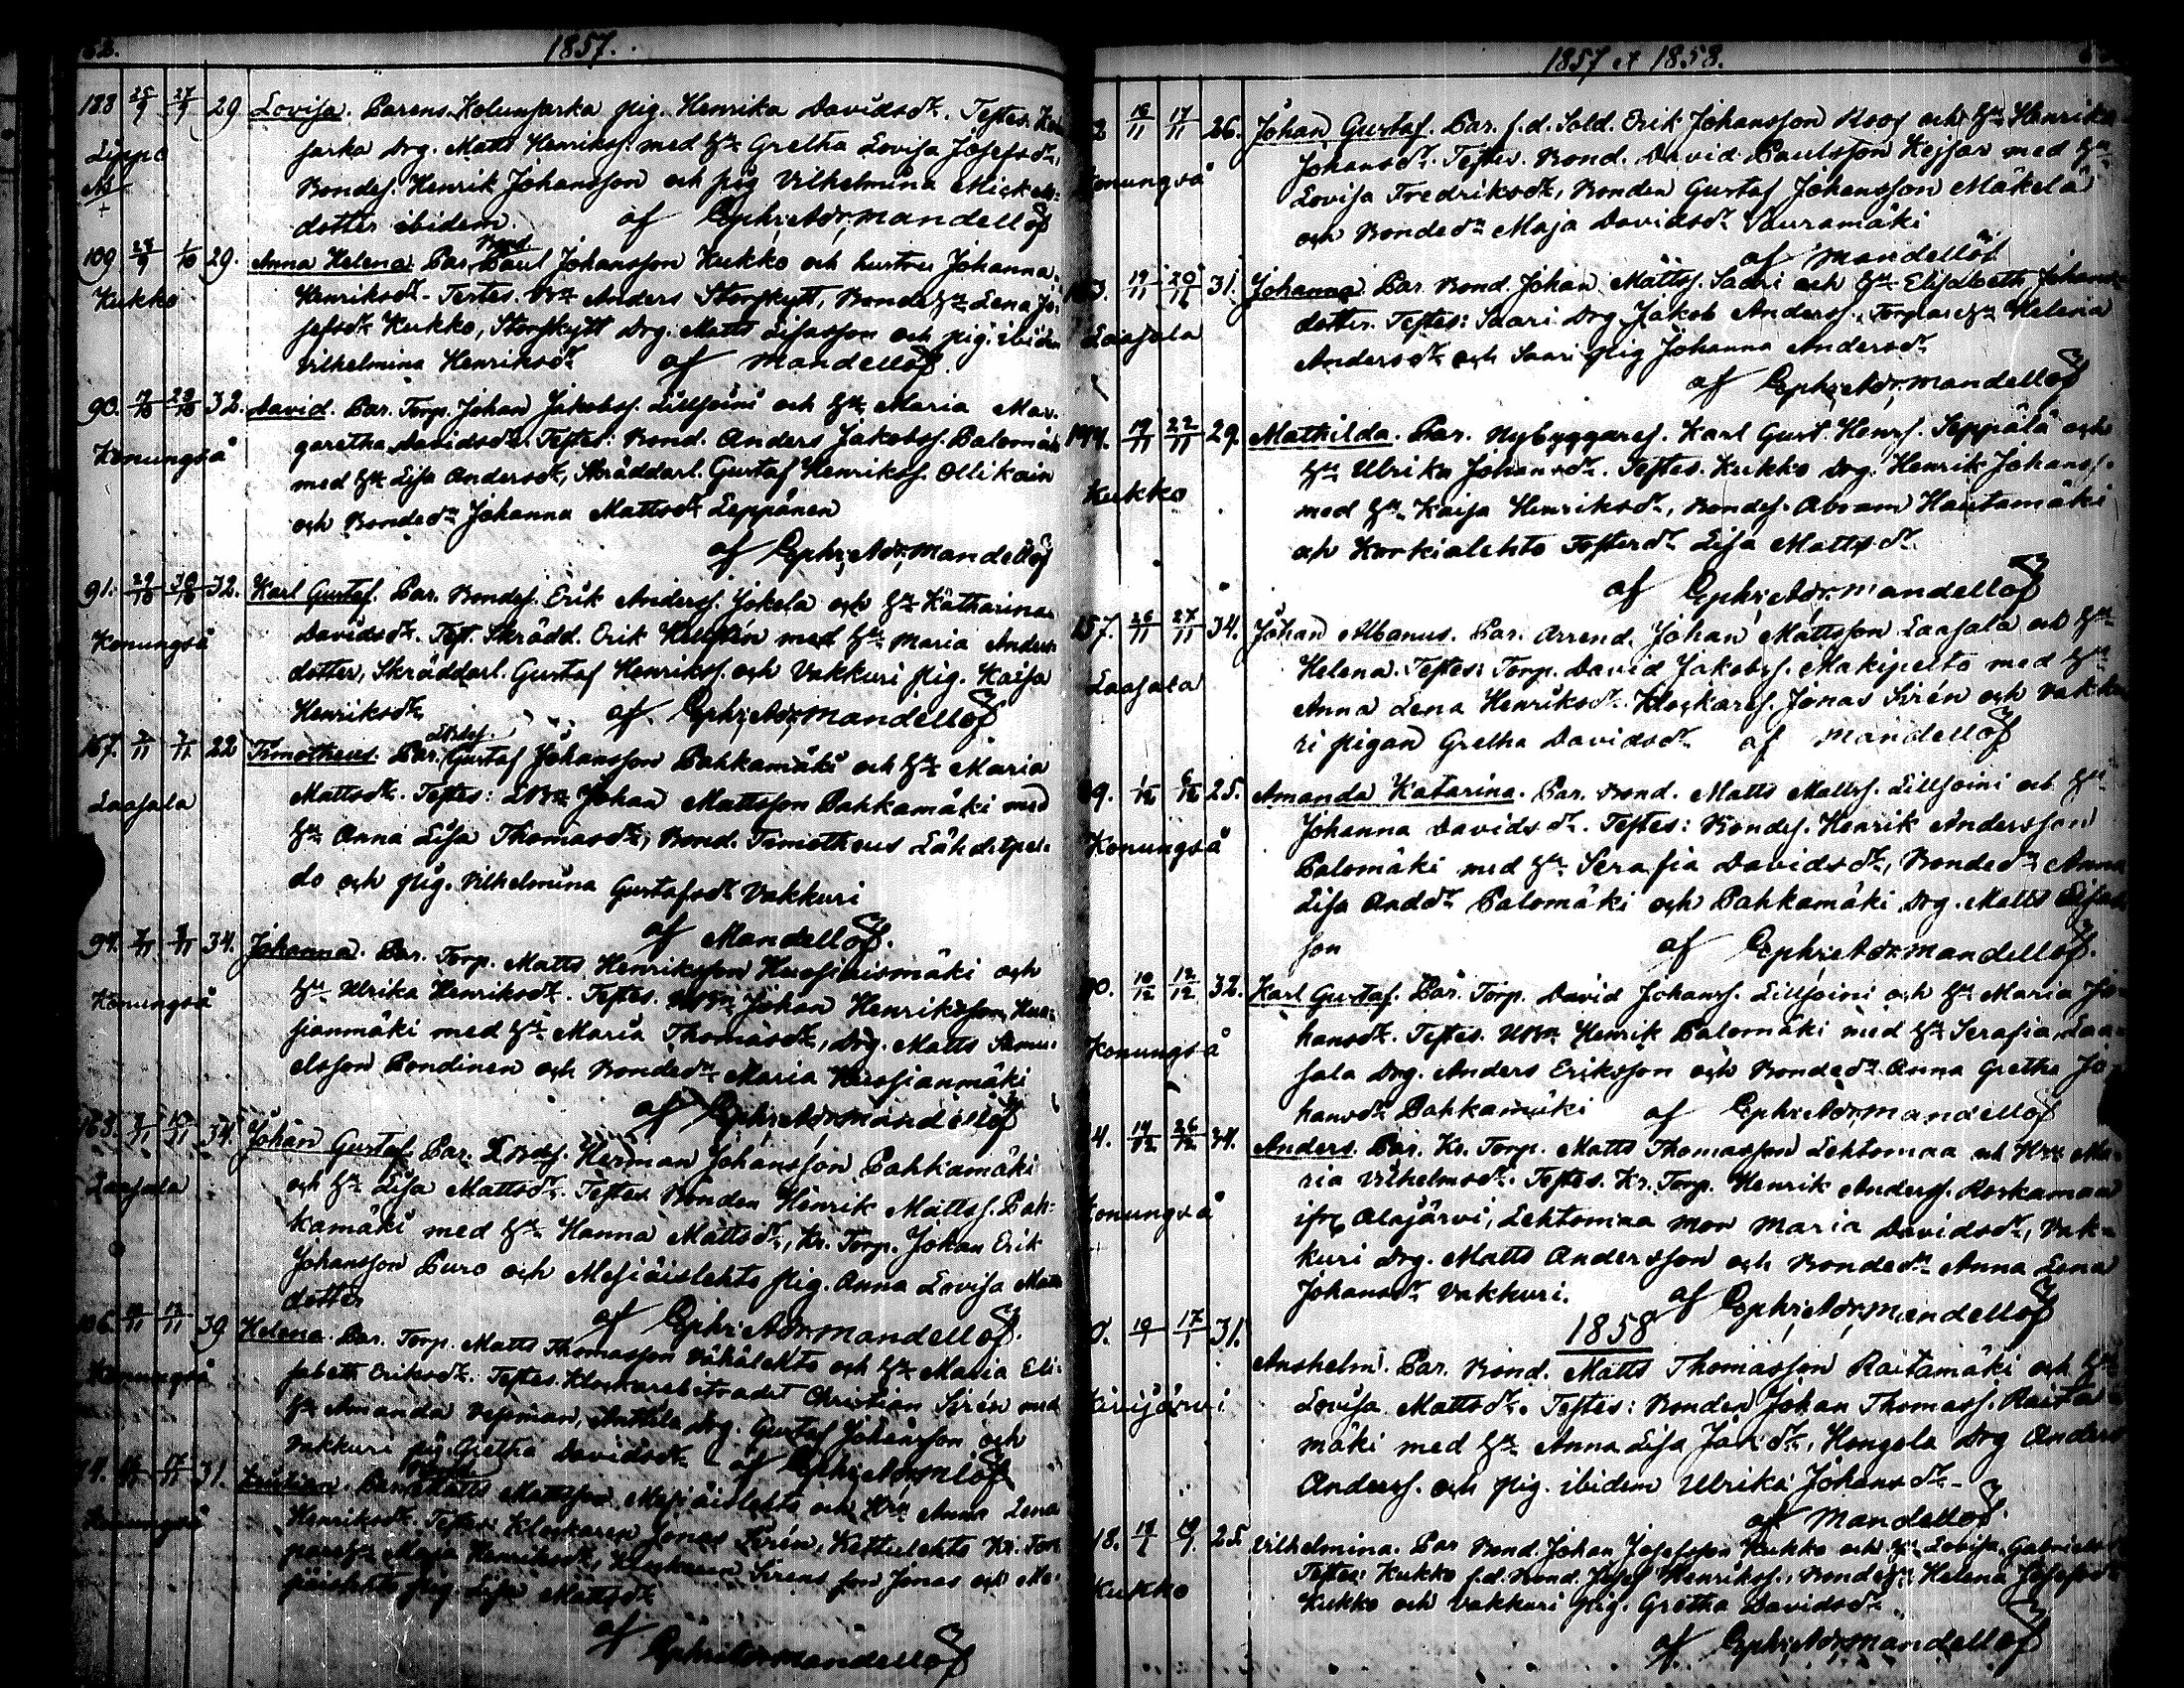 1857.
188 25/9 27/9 29 Lovisa. Parens. Kolunsarka pig. Henrika Davidsdr. Testes. Kolun
Lippo sarka drg. Matts Henrikss. med Hu Gretha Lovisa Josefsdr,
Bondes. Henrik Johansson och pig Vilhelmina Mickels-
dotter ibidem. af Cephri Adr. Mandellöf
109 1/10 29. Anna Helena. Par. Bond. Paul Johansson Kukko och hustru Johanna
Kukko Henriksdr. Testes. Anders Storskytt, Bondehu Lena Jo-
sefsdr Kukko, Storskytt drg. Matts Eliasson och pig. ibidem
Vilhelmina Henriksdr af Mandellöf.
90. 32. David. Par. Torp. Johan Jakobss. Lillsoini och Hu Maria Mar-
Konungså garetha Davidsdr. Testes: Bond. Anders Jakobss. Palomäki
med Hu Lisa Andersdr, Skräddarl. Gustaf Henrikss. Ollikain
och Bondedr Johanna Mattsdr Leppänen
af Cephri Adr. Mandellöf
91. 29/10 30/10 32. Karl Gustaf. Par. Bondes. Erik Anderss. Jokela och Hu Katharina
Konungså Davidsdr. Test. Skrädd. Erik Hellstén med Hu Maria Anders-
dotter, Skräddarl. Gustaf Henrikss. och Vakkuri pig. Kaisa
Henriksdr af Cephri Adr. Mandellöf
167. 22 Timotheus. Par. Gustaf Johansson Pahkamäki och Hu Maria
Laasala Mattsdr. Testes: Johan Mattsson Pahkamäki med
Hu Anna Lisa Thomasdr, Bond. Timotheus Lähdespel-
do och pig. Vilhelmina Gustafsdr Vakkuri
af Mandellöf.
94. 34. Johanna. Par. Torp. Matts Henriksson Huosiaismäki och
Konungså Hu Ulrika Henriksdr. Testes. Johan Henriksson Huo-
sianmäki med Hu Maria Thomasdr, drg. Matts Samu-
elsson Pondinen och Bondedr Maria Huosianmäki
af Cephri Adr. Mandellöf
163. 34. Johan Gustaf. Par. Herman Johansson Pahkamäki
Laasala och Hu Lisa Mattsdr. Testes Bonden Henrik Mattss. Pah-
kamäki med Hu Hanna Mattsdr, Kr. Torp. Johan Erik
Johansson Puro och Mesiäislehto pig. Anna Lovisa Matts
dotter af Cephri Adr. Mandellöf.
39 Helena. Par. Torp. Matts Thomasson Vähälehto och Hu Maria Eli-
Konungså sabeth Eriksdr. Testes. Klockarebiträdet Christian Sirén med
Hu Amanda Vesman, Anttila drg. Gustaf Johansson och
Vakkuri pig. Gretha Davidsdr af Cephri Adr. Mlöf
31. Mattsson Mesiäislehto och Hru Anna Lena
Konungså Henriksdr. Testes: Klockaren Jonas Sirén, Kattulehto Kr. Tor-
parehu Maja Henriksdr, Klockaren Sirens son Jonas och Me-
siäislehto pig. Lisa Mattsdr
af Cephri Adr. Mandellöf
1857 et 1858.
16/11 17/11 26. Johan Gustaf. Par. f.d. Sold. Erik Johansson Roos och Hu Henrika
Konungså Johansdr. Testes. Bond. David Paulsson Keisar med Hu
Lovisa Fredriksdr, Bonden Gustaf Johansson Mäkelä
och Bondedr Maja Davidsdr Vauramäki
af Mandellöf.
19/11 20/11 31. Johanna. Par. Bond. Johan Mattss. Saari och Hu Elisabeth Johans-
Laasala dotter. Testes: Saari drg Jakob Anderss., Torparehu Helena
Andersdr och Saari pig Johanna Andersdr
af Cephri Adr. Mandellöf
194. 19/11 22/11 29. Mathilda. Par. Nybyggares. Karl Gust. Henrs. Seppälä och
Kukko Hu Ulrika Johansdr. Testes. Kukko drg. Henrik Johanss.
med Hu Kaisa Henriksdr, Bondes. Abram Hautamäki
och Korkialehto Fosterdr Lisa Mattsdr
af Cephri Adr. Mandellöf
157. 26/11 27/11 34. Johan Albanus. Par. Arrend. Johan Mattsson Laasala och Hu
Laasala Helena. Testes: Torp. David Jakobss. Makipelto med Hu
Anna Lena Henriksdr. Klockares. Jonas Sirén och Vakku
ri pigan Gretha Davidsdr af Mandellöf
25. Amanda Katarina. Par. Bond. Matts Mattss. Lillsoini och Hu
Konungså Johanna Davidsdr. Testes: Bondes. Henrik Andersson
Palomäki med Hu Serafia Davidsdr, Bondedr Anna
Lisa Andsdr Palomäki och Pahkamäki drg. Matts Elias-
son af Cephri Adr. Mandellöf.
10/12 12/12 32. Karl Gustaf. Par. Torp. David Johanss. Lillsoini och Hu Maria Jo-
Konungså hansdr. Testes. Henrik Palomäki med Hu Serafia, Laa-
sala drg. Anders Eriksson och Bondedr Anna Gretha Jo
hansdr Pahkamäki af Cephri Adr. Mandellöf
34. Anders. Par. Kr. Torp. Matts Thomasson Lehtomaa och Hru Ma-
Konungså ria Vilhelmsdr. Testes. Kr. Torp. Henrik Anderss. Koskamaa
ifr. Alajärvi, Lehtomaa Mor Maria Davidsdr, Vak-
kuri drg. Matts Andersson och Bondedr Anna Lena
Johansdr Vakkuri. af Cephri Adr. Mandellöf
1858
31. Anshelm. Par. Bond. Matts Thomasson Raitamäki och Hu
Kivijärvi Lovisa Mattsdr. Testes: Bonden Johan Thomass. Raita-
mäki med Hu Anna Lisa Jaksdr, Hongola drg Anders
Anderss. och pig. ibidem Ulrika Johansdr
af Mandellöf.
25. Vilhelmina. Par Bond. Johan Josefsson Kukko och Hu Lovisa Gabriels
Testes: Kukko f.d. Bond. Josef Henrikss., Bondehu Helena Josefsdr
Kukko Kukko och Vakkuri pig. Gretha Davidsdr
af Cephri Adr. Mandellöf